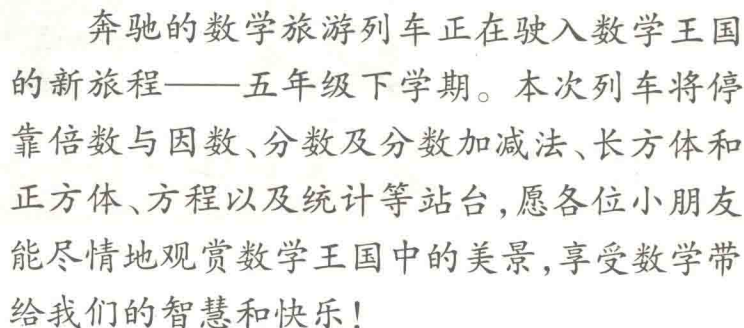 奔驰的数学旅游列车正在驶入数学王国
的新旅程——五年级下学期。本次列车将停
靠倍数与因数、分数及分数加减法、长方体和
正方体、方程以及统计等站台,愿各位小朋友
能尽情地观赏数学王国中的美景,享受数学带
给我们的智慧和快乐!